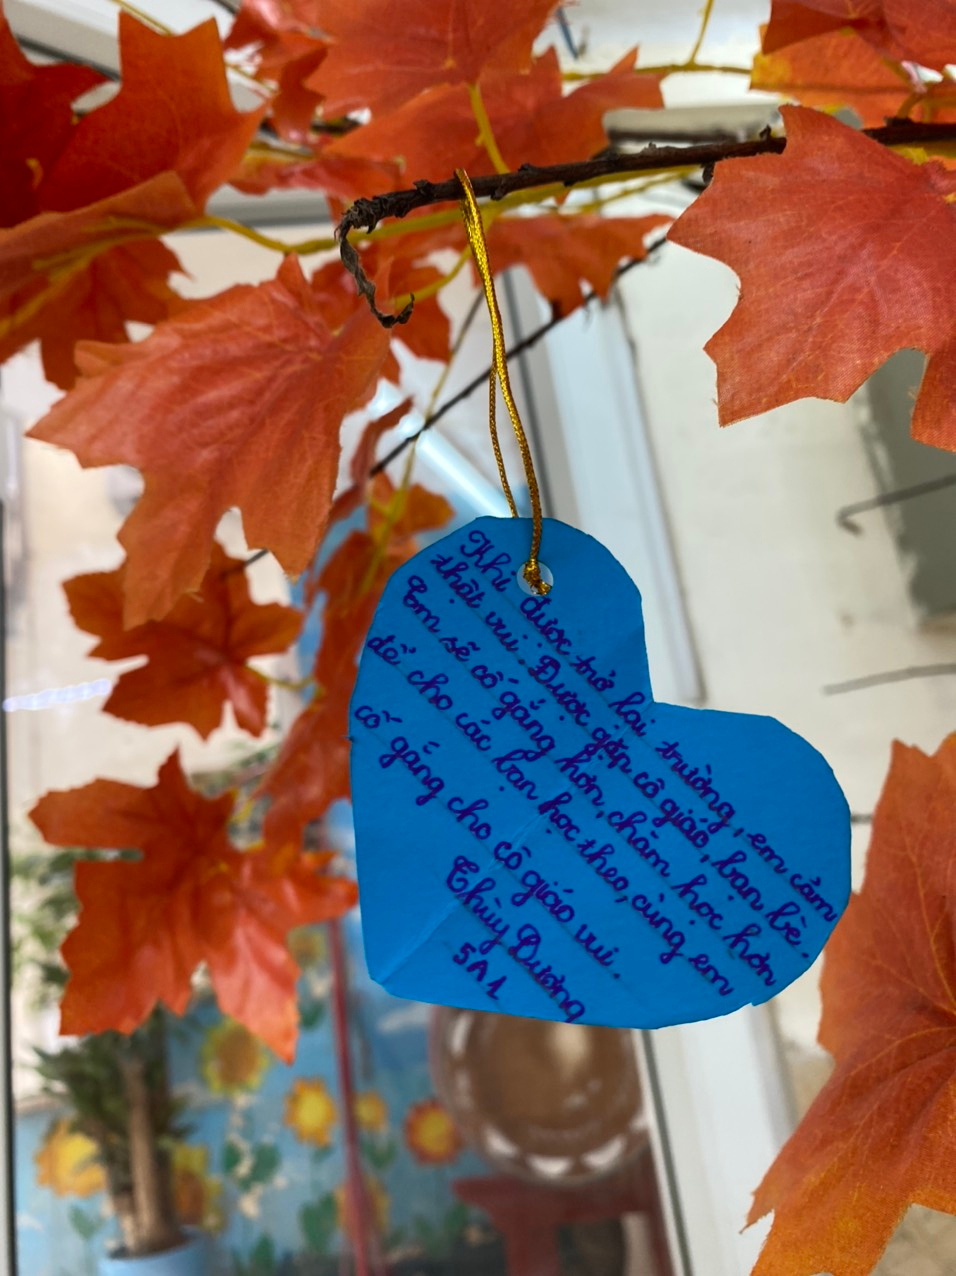 Khi được trở lại trường, em cảm
thật vui. Được gặp cô giáo, bạn bè.
Em sẽ cố gắng hơn, chăm học hơn
để cho các bạn học theo, cùng em
cố gắng cho cô giáo vui.
Thùy Dương
5A1